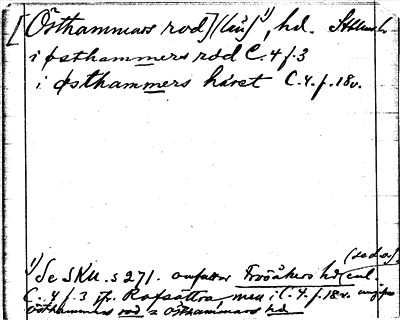 [Östhammars rod] (län) 1), hd.
i østhammers rod C. 4 f. 3
i østhammers häret C. 4. f. 18v.
(sed. a)
1) Se SKU. s 271. omfattar Frösåkers hd enl.
C. 4 f. 3 jfr. Rafsättra, men i C. 4. f. 18v.
östhammars rod = östhammars hd